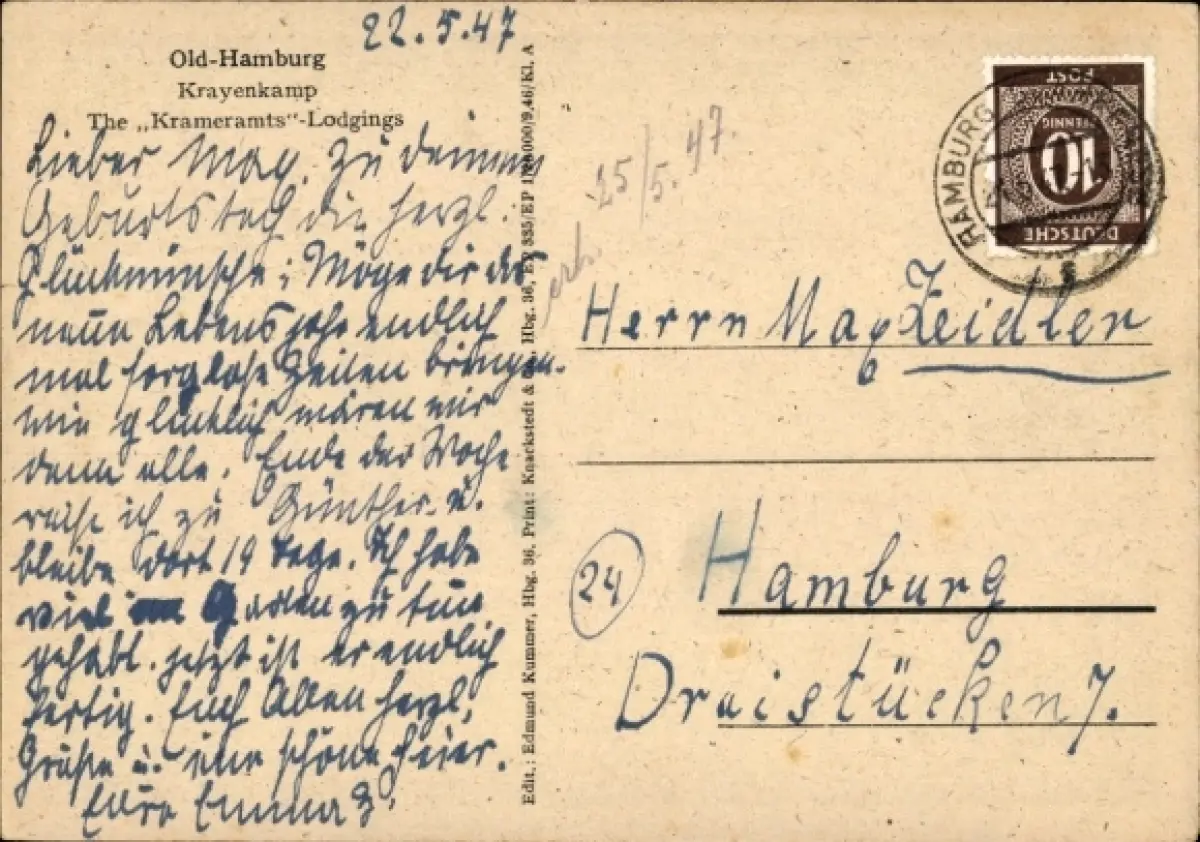 22.5.47
Old-Hamburg
Krayenkamp
The „Krameramts“-Lodgings
Lieber Max. Zu deinem
Geburtstach die herzl.
Glückwünsche; Möge dir das
neue Lebensjahr endlich
mal sorglose Zeiten bringen.
wie glücklich wären wir
denn alle. Ende der Woche
reise ich zu Günther u.
bleibe dort 19 Tage. Ich habe
viel Garten zu tun
gehabt. jetzt ist er endlich
fertig. Euch Allen herzl.
Grüße u. eine schöne Feier.
Eure Emma
Edit.: Edmund Kummer, Hbg. 36, Print: Knackstedt & Hbg. 36, 335/EP 9,46/Kl. A
25/5.47.
DEUTSCHE
POST
10
PFENNIG
HAMBURG
Herrn Max Zeidler
24
Hamburg
Draistücken 7.